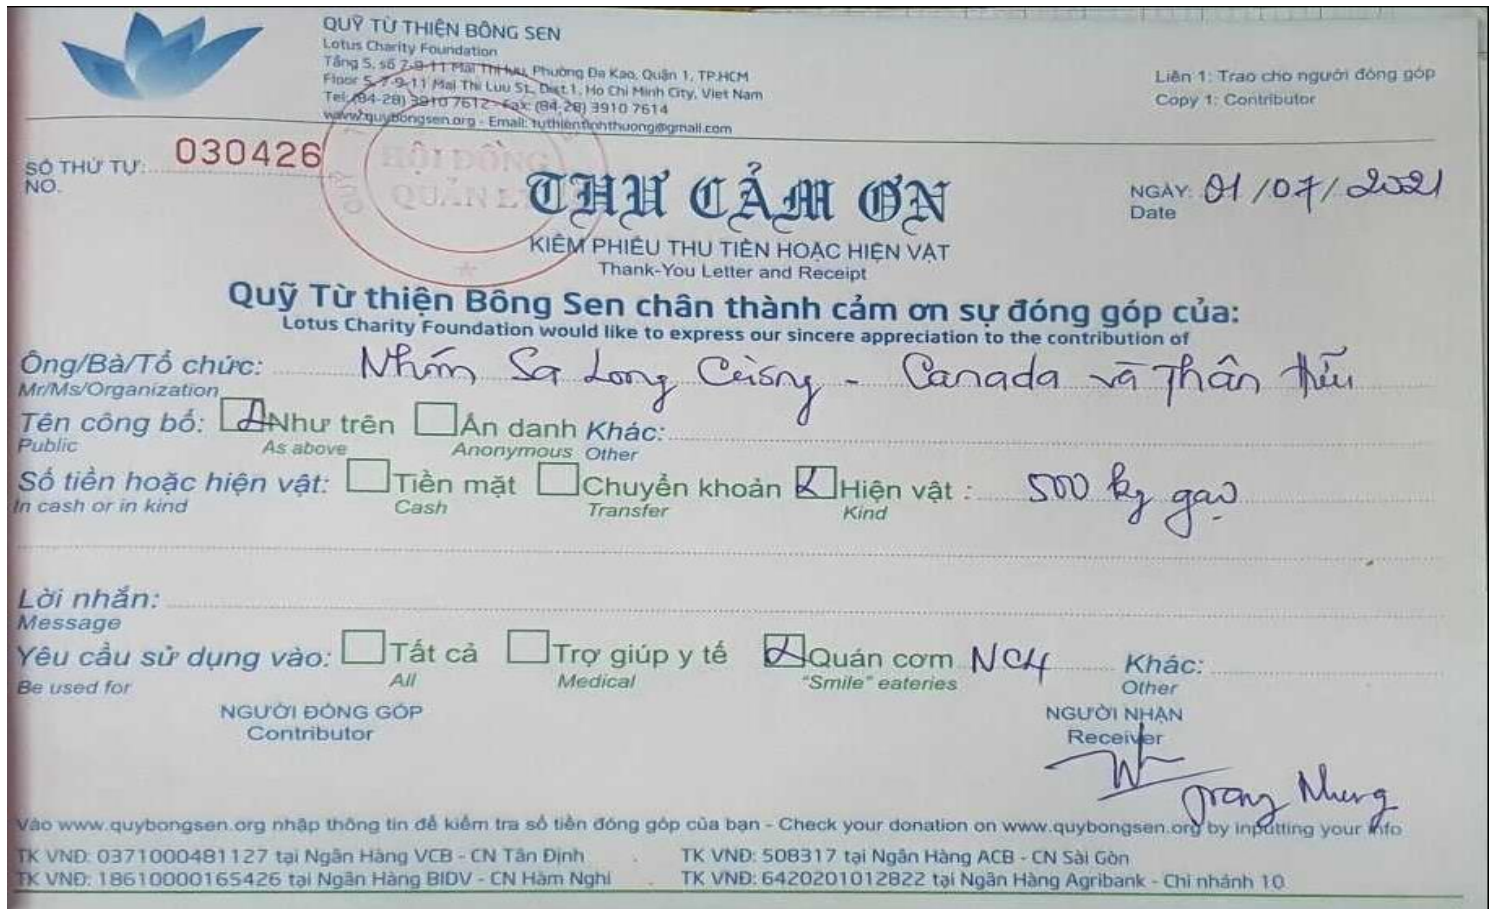 QUỸ TỪ THIỆN BÔNG SEN
Lotus Charity Foundation
Tầng 5, số 7-9-11 Mai Thị Lựu, Phường Đa Kao, Quận 1, TP.HCM
Floor 5, 7-9-11 Mai Thi Luu St., Dist.1, Ho Chi Minh City, Viet Nam
Tel: (84-28) 3910 7612 - Fax: (84-28) 3910 7614
www.quybongsen.org - Email: tuthientinhthuong@gmail.com
Liên 1: Trao cho người đóng góp
Copy 1: Contributor
SỐ THỨ TỰ: 030426
NO.
HỘI ĐỒNG
QUẢN L
THƯ CẢM ƠN
NGÀY: 01/07/2021
Date
KIÊM PHIẾU THU TIỀN HOẶC HIỆN VẬT
Thank-You Letter and Receipt
Quỹ Từ thiện Bông Sen chân thành cảm ơn sự đóng góp của:
Lotus Charity Foundation would like to express our sincere appreciation to the contribution of
Ông/Bà/Tổ chức: Nhóm Sa Long - Canada và Thân Hữu
Mr/Ms/Organization
Tên công bố: Như trên Ẩn danh Khác:
Public As above Anonymous Other
Số tiền hoặc hiện vật: Tiền mặt Chuyển khoản Hiện vật : 500 kg gạo
In cash or in kind Cash Transfer Kind
Lời nhắn:
Message
Yêu cầu sử dụng vào: Tất cả Trợ giúp y tế Quán cơm NC4 Khác:
Be used for All Medical "Smile" eateries Other
NGƯỜI ĐÓNG GÓP NGƯỜI NHẬN
Contributor Receiver
Trang Nhung
Vào www.quybongsen.org nhập thông tin để kiểm tra số tiền đóng góp của bạn - Check your donation on www.quybongsen.org by inputting your info
TK VNĐ: 0371000481127 tại Ngân Hàng VCB - CN Tân Định TK VNĐ: 508317 tại Ngân Hàng ACB - CN Sài Gòn
TK VNĐ: 18610000165426 tại Ngân Hàng BIDV - CN Hàm Nghi TK VNĐ: 6420201012822 tại Ngân Hàng Agribank - Chi nhánh 10